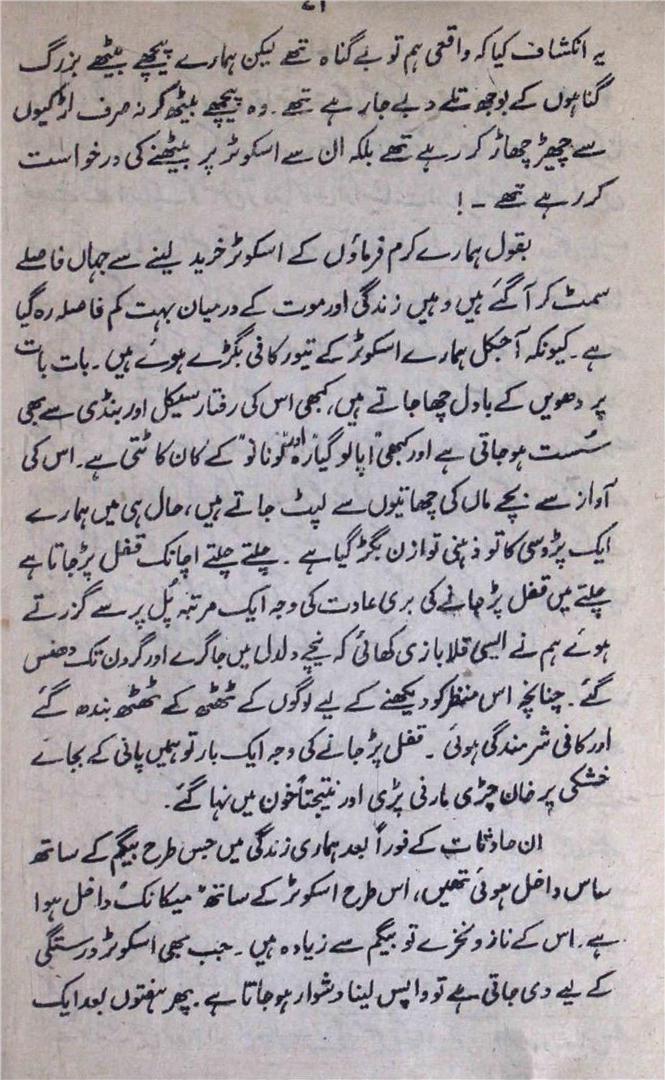 یہ انکشاف کیا کہ واقعی ہم تو بے گناہ تھے لیکن ہمارے پیچھے بیٹھے بزرگ
گناہوں کے بوجھ تلے دبے جا رہے تھے۔ وہ پیچھے بیٹھ کر نہ صرف لڑکیوں
سے چھیڑ چھاڑ کر رہے تھے بلکہ ان سے اسکوٹر پر بیٹھنے کی درخواست
کر رہے تھے ۔!
بقول ہمارے کرم فرماؤں کے اسکوٹر خرید لینے سے جہاں فاصلے
سمٹ کر آ گئے ہیں وہیں زندگی اور موت کے درمیان بہت کم فاصلہ رہ گیا
ہے۔ کیونکہ آجکل ہمارے اسکوٹر کے تیور کافی بگڑے ہوئے ہیں۔ بات بات
پر دھویں کے بادل چھا جاتے ہیں، کبھی اس کی رفتار سیکل اور بنڈی سے بھی
سُست ہو جاتی ہے اور کبھی "اپالو گیارہ" اور "لونا نو" کے کان کاٹتی ہے۔ اس کی
آواز سے بچے ماں کی چھاتیوں سے لپٹ جاتے ہیں، حال ہی میں ہمارے
ایک پڑوسی کا تو ذہنی توازن بگڑ گیا ہے ۔ چلتے چلتے اچانک قفل پڑ جاتا ہے
چلتے میں قفل پڑ جانے کی بری عادت کی وجہ ایک مرتبہ پُل پر سے گزرتے
ہوئے ہم نے ایسی قلابازی کھائی کہ نیچے دلدل میں جا گرے اور گردن تک دھنس
گئے۔ چنانچہ اس منظر کو دیکھنے کے لیے لوگوں کے ٹھٹھ کے ٹھٹھ بندھ گئے
اور کافی شرمندگی ہوئی ۔ قفل پڑ جانے کی وجہ ایک بار تو ہمیں پانی کے بجائے
خشکی پر خان چڑی مارنی پڑی اور نتیجتاً خون میں نہا گئے۔
ان حادثات کے فوراً بعد ہماری زندگی میں جس طرح بیگم کے ساتھ
ساس داخل ہوئی تھیں، اس طرح اسکوٹر کے ساتھ "میکانک" داخل ہوا
ہے۔ اس کے ناز و نخرے تو بیگم سے زیادہ ہیں ۔ جب بھی اسکوٹر درستگی
کے لیے دی جاتی ہے تو واپس لینا دشوار ہو جاتا ہے۔ پھر ہفتوں بعد ایک